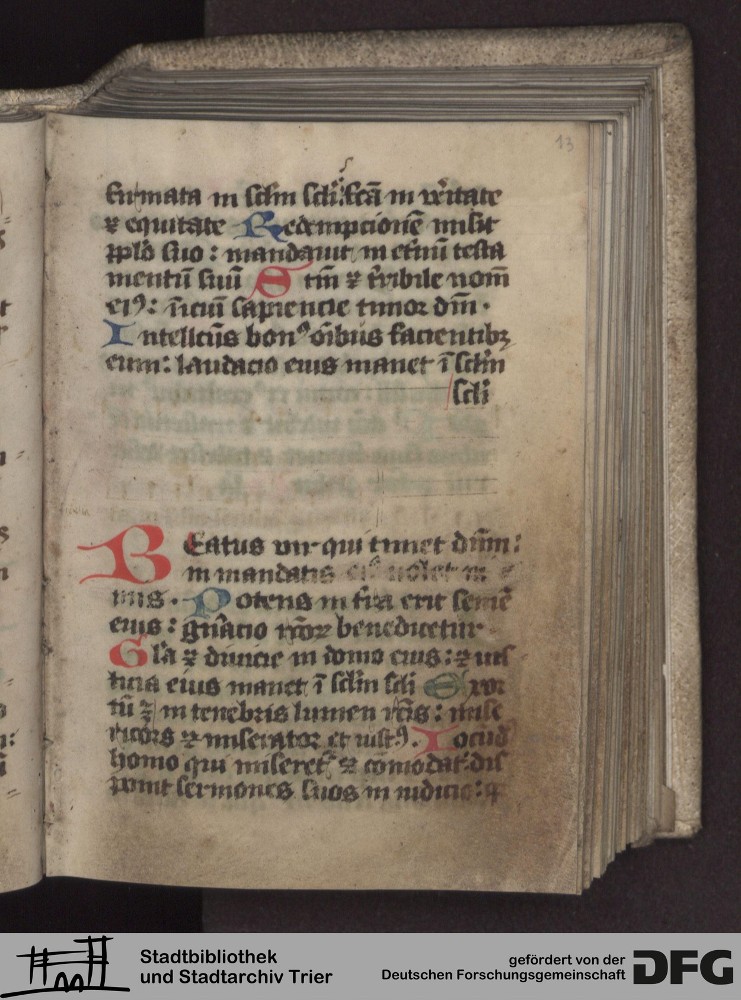 13
firmata in sclm scli: fc̄a in v̓itate
⁊ equitate Redempcionē misit
pplo suo: mandauit in et̓nū testa
mentū suū Sc̄m ⁊ t̓ribile nom̄
eiꝰ: īiciū sapiencie timor dm̄.
Intellcūs bonꝰ oībus facientibꝫ
eum: laudacio eius manet ī sclm
scli
Beatus vir qui timet dūm:
in mandatis eiꝰ uolet ni
mis. Potens in t̓ra erit semē
eius: gn̄acio rc̄oꝝ benedicetur.
Gl̓a ⁊ diuicie in domo eius: ⁊ ius
ticia eius manet ī sclm scli Exor
tū ē in tenebris lumen rc̄is: mise
ricors ⁊ miserator et iustꝰ. Iocūd
homo qui miseret᷑ ⁊ comodat: dis
ponit sermones suos in iudicio: q̄
Stadtbibliothek
und Stadtarchiv Trier
gefördert von der
Deutschen Forschungsgemeinschaft
DFG